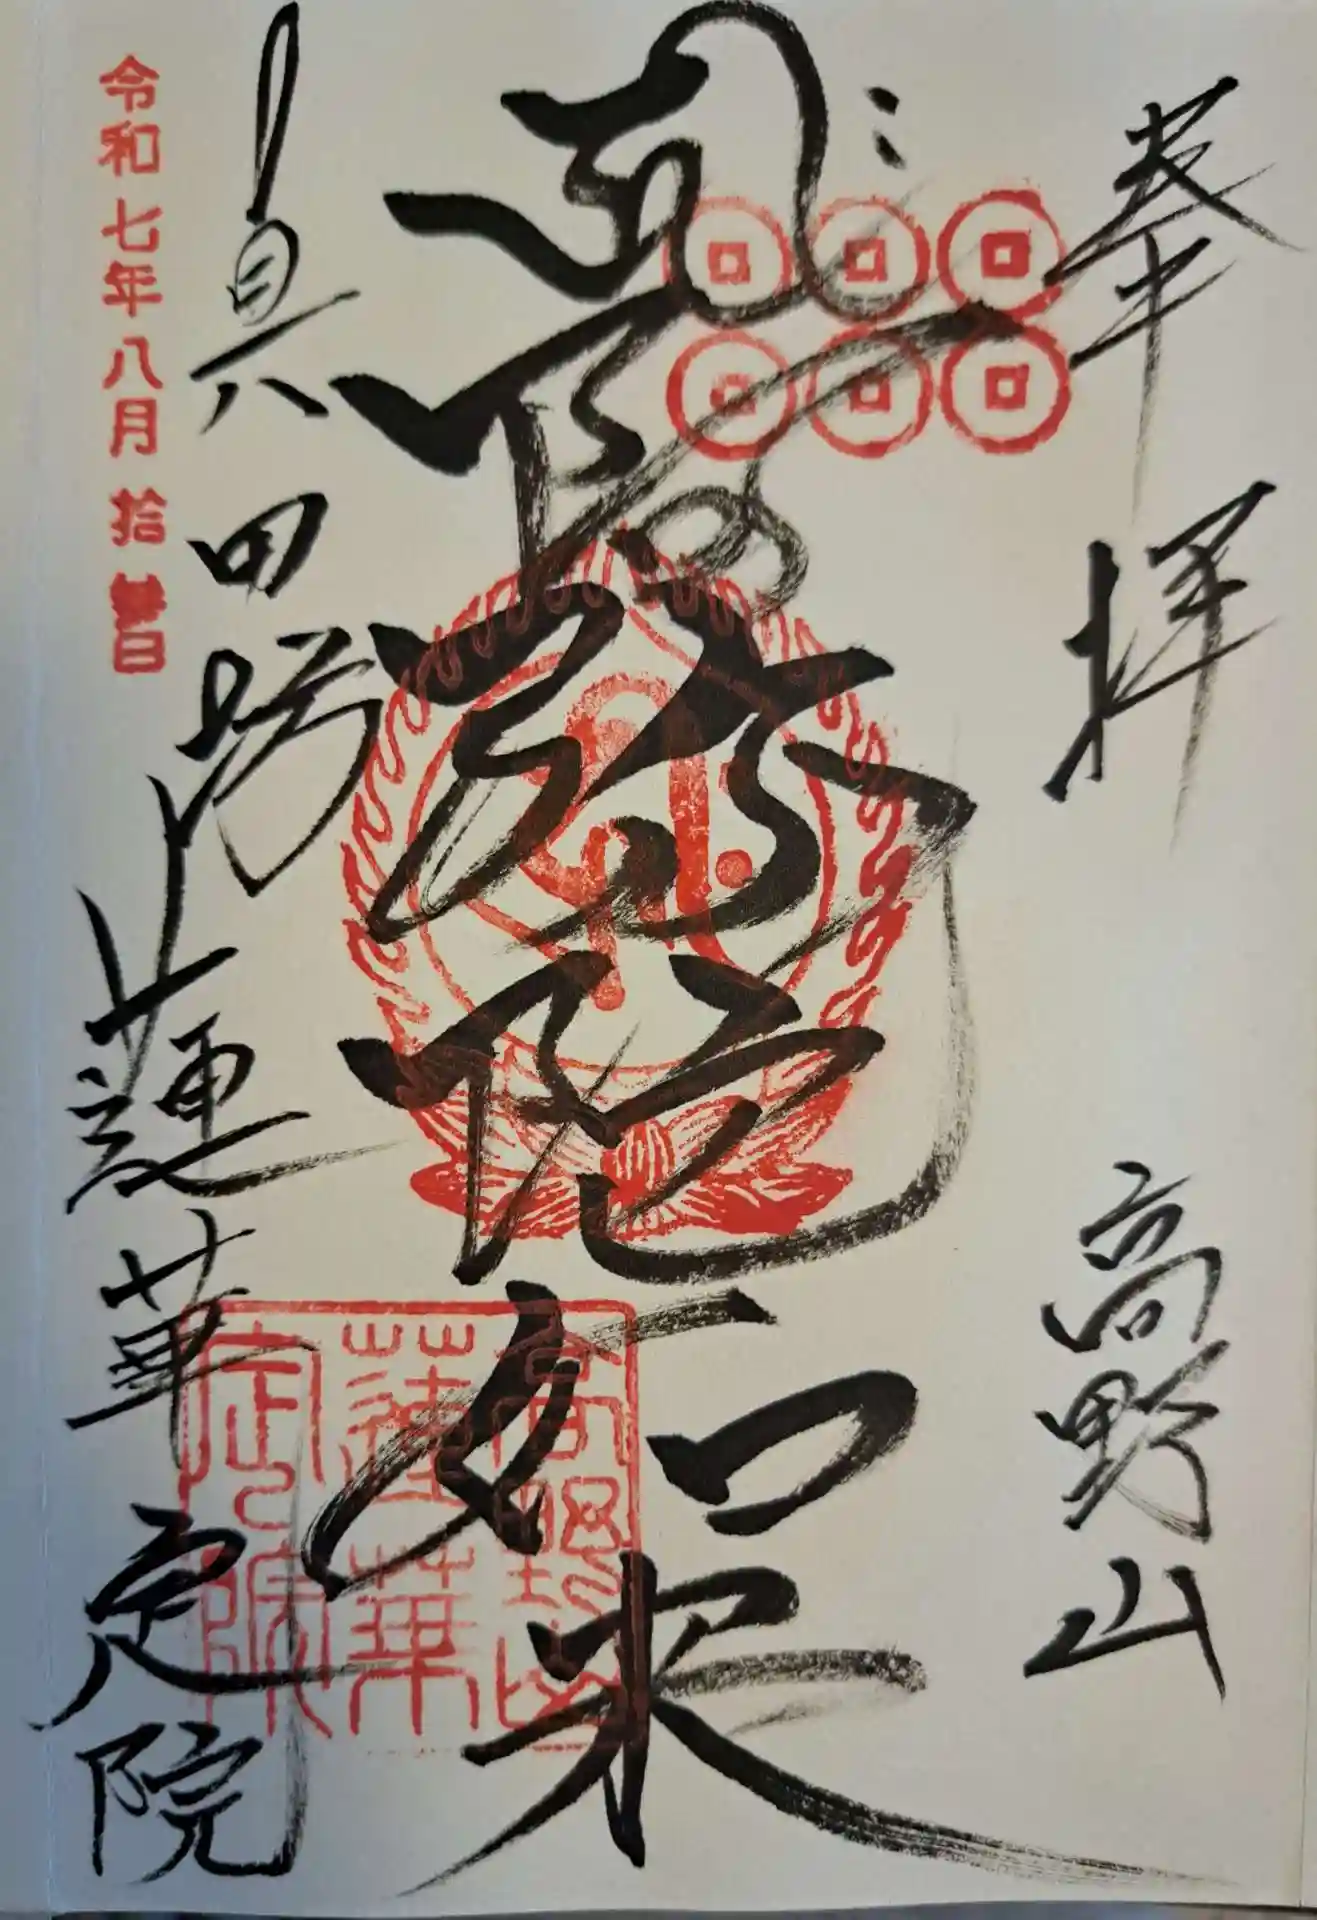 奉拝
高野山
阿弥陀如来
真田坊
蓮華定院
令和七年八月拾日
高野山
蓮華
定院